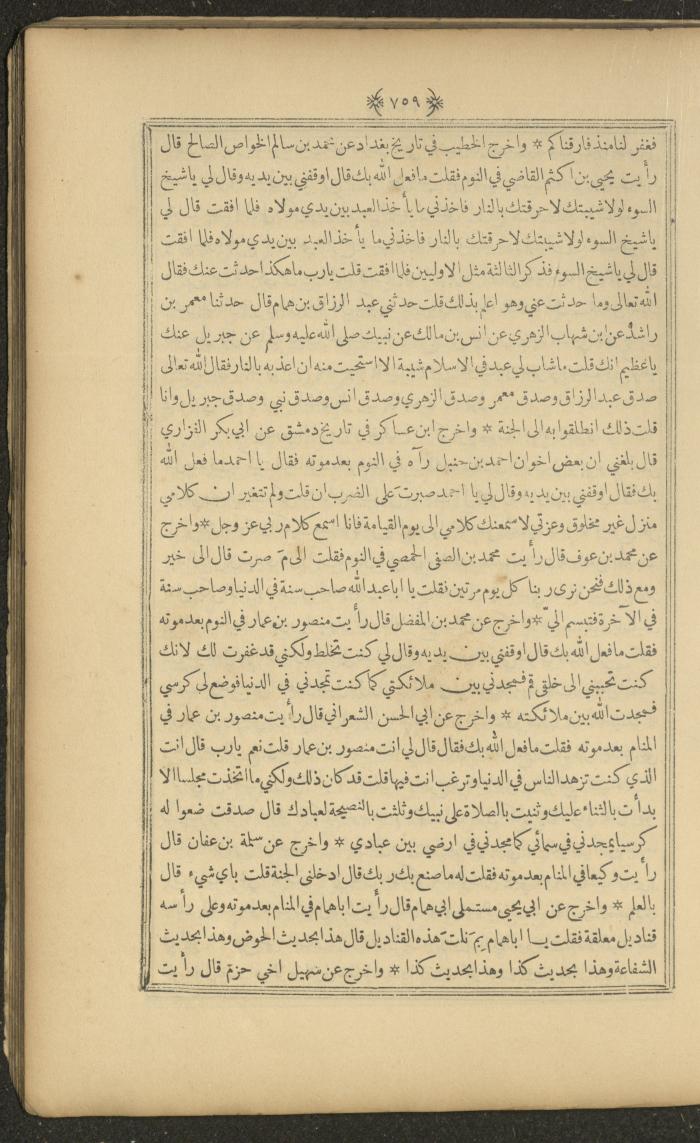 ٧٥٩
فغفر لنا منذ فارقناكم * واخرج الخطيب في تاريخ بغداد عن محمد بن سالم الخواص الصالح قال
رأيت يحيى بن اكثم القاضي في النوم فقلت مافعل الله بك قال اوقفني بين يديه وقال لي ياشيخ
السوء لولا شيبتك لاحرقتك بالنار فاخذني ما يأخذ العبد بين يدي مولاه فلما افقت قال لي
ياشيخ السوء لولا شيبتك لاحرقتك بالنار فاخذني ما يأخذ العبد بين يدي مولاه فلما افقت
قال لي ياشيخ السوء فذكر الثالثة مثل الاوليين فلما افقت قلت يارب ماهكذا حدثت عنك فقال
الله تعالى وما حدثت عني وهو اعلم بذلك قلت حدثني عبد الرزاق بن همام قال حدثنا معمر بن
راشد عن ابن شهاب الزهري عن انس بن مالك عن نبيك صلى الله عليه وسلم عن جبريل عنك
ياعظيم انك قلت ماشاب لي عبد في الاسلام شيبة الا استحيت منه ان اعذبه بالنار فقال الله تعالى
صدق عبد الرزاق وصدق معمر وصدق الزهري وصدق انس وصدق نبي وصدق جبريل وانا
قلت ذلك انطلقوا به الى الجنة * واخرج ابن عساكر في تاريخ دمشق عن ابي بكر الفزاري
قال بلغني ان بعض اخوان احمد بن حنبل رآه في النوم بعد موته فقال يا احمد ما فعل الله
بك فقال اوقفني بين يديه وقال لي يا احمد صبرت على الضرب ان قلت ولم تتغير ان كلامي
منزل غير مخلوق وعزتي لاسمعنك كلامي الى يوم القيامة فانا اسمع كلام ربي عز وجل * واخرج
عن محمد بن عوف قال رأيت محمد بن المصفى الحمصي في النوم فقلت الى مَ صرت قال الى خير
ومع ذلك فنحن نرى ربنا كل يوم مرتين فقلت يا ابا عبد الله صاحب سنة في الدنيا وصاحب سنة
في الآخرة فتبسم اليّ * واخرج عن محمد بن المفضل قال رأيت منصور بن عمار في النوم بعد موته
فقلت مافعل الله بك قال اوقفني بين يديه وقال لي كنت تخلط ولكني قد غفرت لك لانك
كنت تحببني الى خلقي قم فمجدني بين ملائكتي كما كنت تمجدني في الدنيا فوضع لي كرسي
فمجدت الله بين ملائكته * واخرج عن ابي الحسن الشعراني قال رأيت منصور بن عمار في
المنام بعد موته فقلت مافعل الله بك فقال قال لي انت منصور بن عمار قلت نعم يارب قال انت
الذي كنت تزهد الناس في الدنيا وترغب انت فيها قلت قد كان ذلك ولكني ما اتخذت مجلسا الا
بدأت بالثناء عليك وثنيت بالصلاة على نبيك وثلثت بالنصيحة لعبادك قال صدقت ضعوا له
كرسيا يمجدني في سمائي كما مجدني في ارضي بين عبادي * واخرج عن سلمة بن عفان قال
رأيت وكيعا في المنام بعد موته فقلت له ما صنع بك ربك قال ادخلني الجنة قلت باي شيء قال
بالعلم * واخرج عن ابي يحيى مستملى ابي همام قال رأيت ابا همام في المنام بعد موته وعلى رأسه
قناديل معلقة فقلت يا ابا همام بِمَ نلت هذه القناديل قال هذا بحديث الحوض وهذا بحديث
الشفاعة وهذا بحديث كذا وهذا بحديث كذا * واخرج عن سهيل اخي حزم قال رأيت